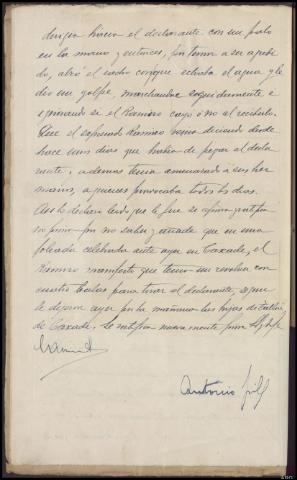 dirigia hacia el declarante con un palo
en la mano y entonces, por temor a ser agredi-
do, alzó el sacho conque echaba el agua y le
dio un golpe, marchandose seguidamente e
ignorando si el Ramiro cayó ó no al recibirlo.
Que el expresado Ramiro venia diciendo desde
hace unos dias que habia de pegar al decla
rante, y ademas tenia amenazado a sus her
manos, a quienes provocaba todos los dias.
Asi lo declara leido que le fue se afirma y ratifica
no firma por no saber y añade que en una
foliada celebrada ante ayer en Taxade, el
Ramiro manifestó que tenia un revolver con
cuatro balas para tirar al declarante, segun
le dijeron ayer por la mañana las hijas de
de Taxade. Se ratifica nuevamente firma
Antonio Gil